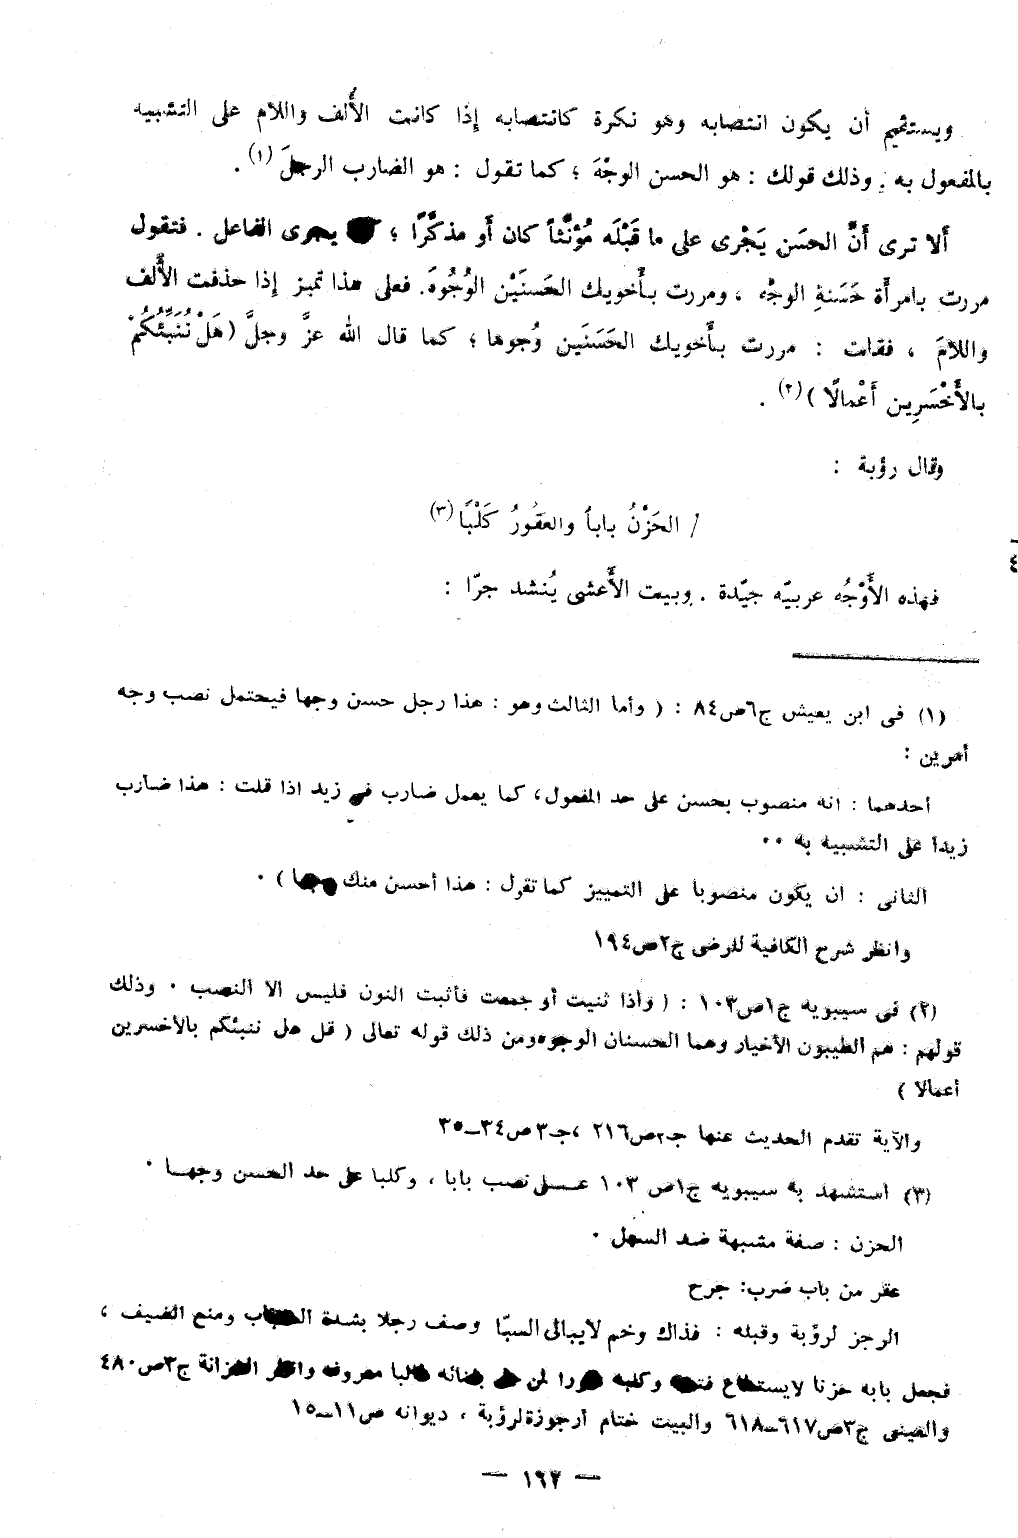 ويستقيم أن يكون انتصابه وهو نكرة كانتصابه إِذا كانت الأَلف واللام على التشبيه
بالمفعول به . وذلك قولك : هو الحسن الوجْهَ ؛ كما تقول : هو الضارب الرجلَ (١) .
أَلا ترى أَنَّ الحسَن يَجْرى على ما قَبْلَه مُؤنَّثاً كان أَو مذكَّرًا ؛ يجرى الفاعل . فتقول
مررت بامرأَة حَسَنةِ الوجْه ، ومررت بأَخويك الحَسنَيْن الوُجُوهَ. فعلى هذا تميز إِذا حذفت الأَلف
واللامَ ، فقلت : مررت بأَخويك الحَسَنَين وُجوها ؛ كما قال الله عزَّ وجلَّ (هَلْ نُنَبِّئُكُمْ
بالأَخْسَرِين أَعْمالًا )(٢) .
وقال رؤبة :
/ الحَزْنُ باباً والعقُورُ كَلْبًا (٣)
٤
فهذه الأَوْجُه عربيّه جيّدة . وبيت الأَعشى يُنشد جرّا :
(١) فى ابن يعيش ج٦ص٨٤ : ( وأما الثالث وهو : هذا رجل حسن وجها فيحتمل نصب وجه
أمرين :
أحدهما : انه منصوب بحسن على حد المفعول، كما يعمل ضارب في زيد اذا قلت : هذا ضارب
زيدا على التشبيه به ٠٠
الثانى : ان يكون منصوبا على التمييز كما تقول : هذا أحسن منك وجها ) ٠
وانظر شرح الكافية للرضى ج٢ص١٩٤
(٢) فى سيبويه ج١ص١٠٣ : ( وأذا ثنيت أو جمعت فأثبت النون فليس الا النصب ٠ وذلك
قولهم : هم الطيبون الأخيار وهما الحسنان الوجوه ومن ذلك قوله تعالى ( قل هل ننبئكم بالأخسرين
أعمالا )
والآية تقدم الحديث عنها جـ٢ص٢١٦ ،جـ٣ ص٣٤ــ٣٥
(٣) أستشهد به سيبويه ج١ص ١٠٣ عــلى نصب بابا ، وكلبا على حد الحسن وجهــا ٠
الحزن : صفة مشبهة ضد السهل ٠
عقر من باب ضرب: جرح
الرجز لرؤبة وقبله : فذاك وخم لايبالى السبّا وصف رجلا بشدة الحجاب ومنع الضيف ،
فجعل بابه حزنا لايستطاع فتحه وكلبه عقورا لمن حل بفنائه طالبا معروفه وانظر الخزانة ج٣ص٤٨٠
والعينى ج٣ص٦١٧ــ٦١٨ والبيت ختام أرجوزة لرؤبة ، ديوانه ص١١ــ١٥
— ١٦٢ —